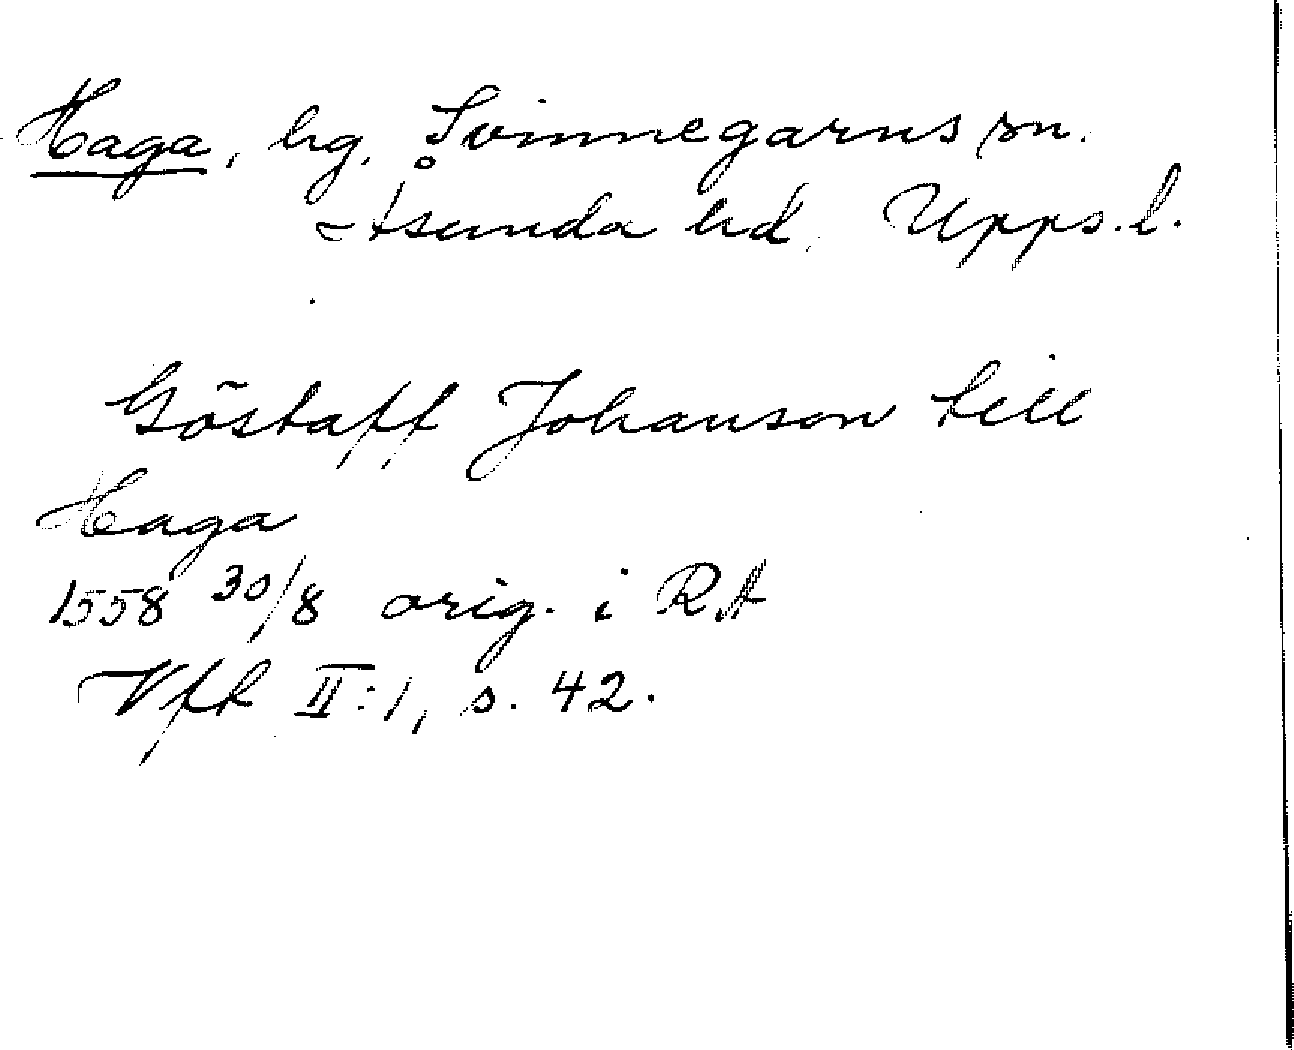 Haga, hg. Svinnegarns sn.
Åtsunda hd. Upps. l.
Göstaff Johanson till
Haga
1558 30/8 orig. i RA
Vfk II:1, s. 42.